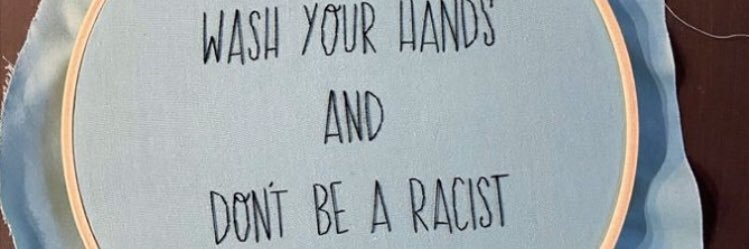 WASH YOUR HANDS
AND
DON'T BE A RACIST